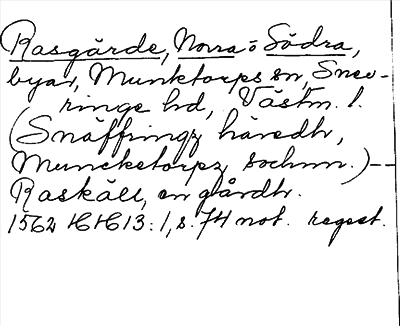 Rasgärde, Norra o Södra,
byar, Munktorps sn, Snev-
ringe hd, Västm. l.
(Snäffringz häredh,
Muncketorpz sochnn.)--
Raskäll, en gårdh.
1562 HH 13:1, s. 74 not. regest.